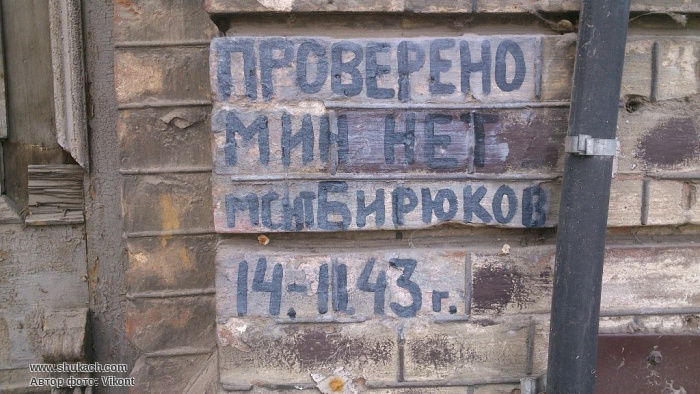 ПРОВЕРЕНО
МИН НЕТ
МС-НТ БИРЮКОВ
14.-II.43 г.
www.shukach.com
Автор фото: Vikont